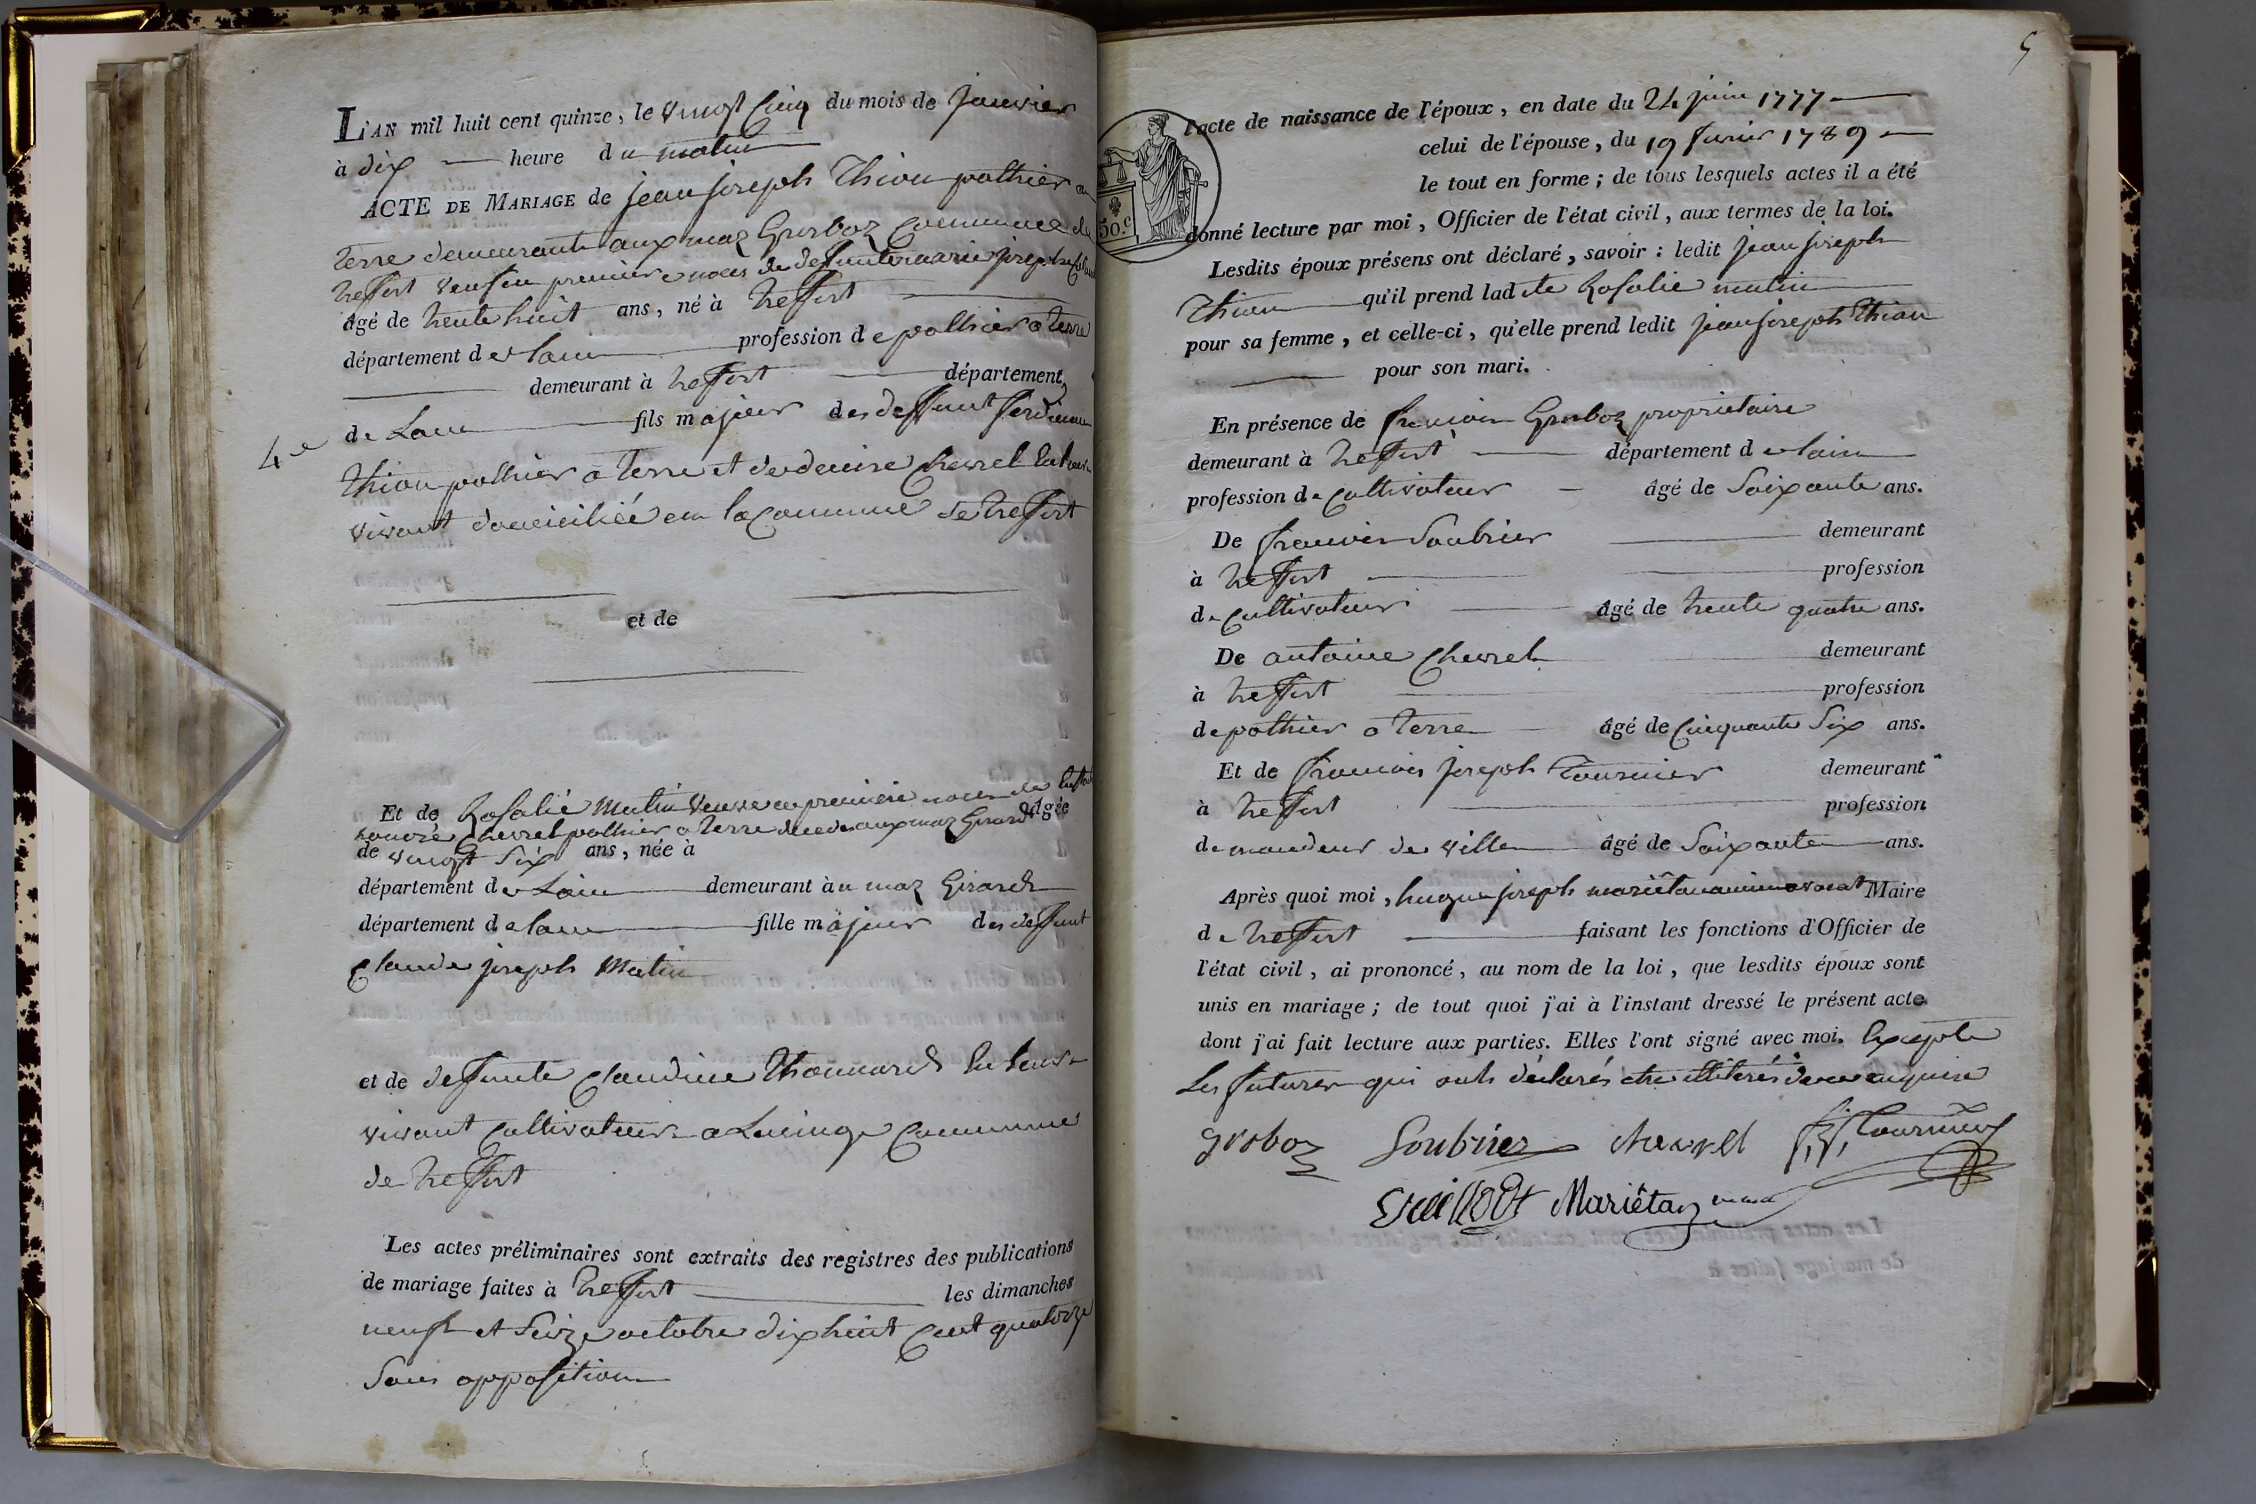 L'AN mil huit cent quinze, le vingt Cinq du mois de Janvier
à dix heure du matin
ACTE DE MARIAGE de jean joseph Thion pothier a
terre demeurante aux maz Grosboz Commune de
treffort veuf en premiere noces de deffunte marie joseph
âgé de trente huit ans, né à treffort
département de lain profession de pothier a terre
demeurant à treffort département
de Lain fils majeur des deffunt
4e
Thion pothier a terre et de denise Chevrel
vivant domiciliée en la Commune de treffort
et de
Et de Rosalie Mutin veuve en premiere noces de
honoré Chevrel pothier a terre decedé aux maz Girard âgée
de vingt Six ans, née à
département de Lain demeurant au maz Girard
département de lain fille majeur des deffunt
Claude joseph Mutin
et de deffunte Claudine Thoinard
vivant Cultivateurs a Lucinge Commune
de treffort
Les actes préliminaires sont extraits des registres des publications
de mariage faites à treffort les dimanches
neuf et Seize octobre dix huit Cent quatorze
Sans opposition
5
50.c
l'acte de naissance de l'époux, en date du 24 juin 1777
celui de l'épouse, du 19 fevrier 1789
le tout en forme; de tous lesquels actes il a été
donné lecture par moi, Officier de l'état civil, aux termes de la loi.
Lesdits époux présens ont déclaré, savoir: ledit jean joseph
Thion qu'il prend ladite Rosalie mutin
pour sa femme, et celle-ci, qu'elle prend ledit jean joseph Thion
pour son mari.
En présence de francois Grosboz propriétaire
demeurant à treffort département de lain
profession de Cultivateur âgé de Soixante ans.
De francois Soubrier demeurant
à treffort profession
de Cultivateur âgé de trente quatre ans.
De antoine Chevrel demeurant
à treffort profession
de pothier a terre âgé de Cinquante Six ans.
Et de francois joseph Tournier demeurant
à treffort profession
de mandeur de ville âgé de Soixante ans.
Après quoi moi, hugue joseph mariêtan avocat Maire
de treffort faisant les fonctions d'Officier de
l'état civil, ai prononcé, au nom de la loi, que lesdits époux sont
unis en mariage; de tout quoi j'ai à l'instant dressé le présent acte
dont j'ai fait lecture aux parties. Elles l'ont signé avec moi. Excepte
Les futures qui onts déclarés etre illiterés de ce enquise
grosboz Soubrier chevrel f, j, Tournier
Mariêtan